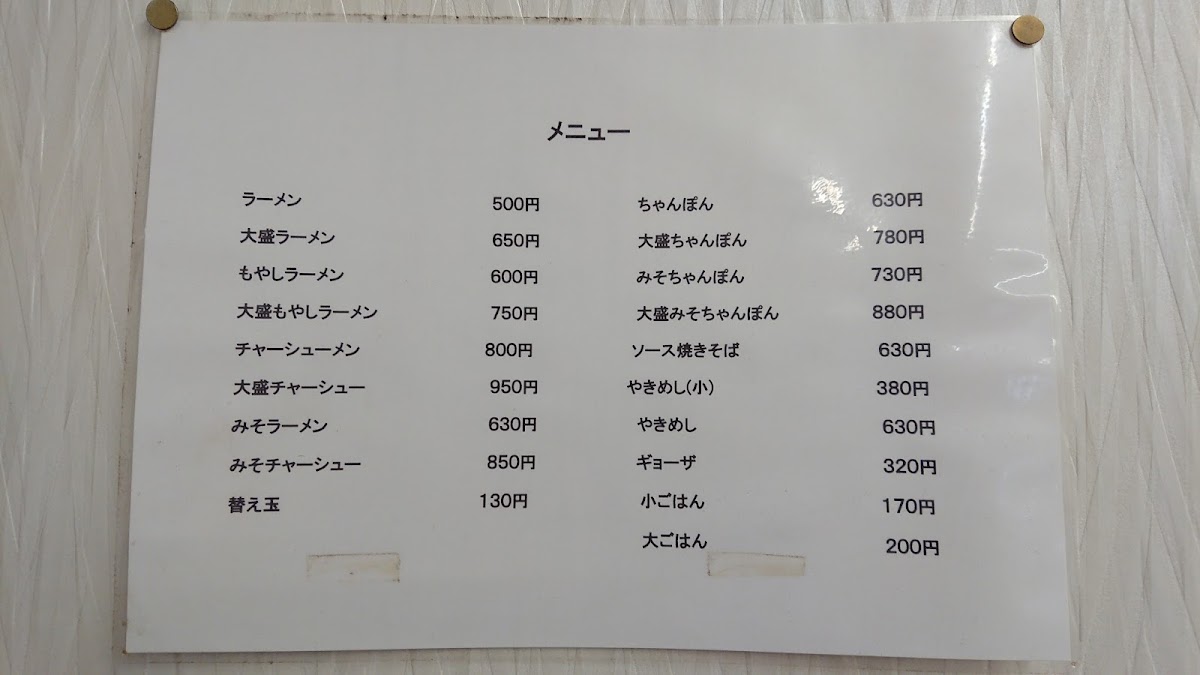 メニュー
ラーメン 500円
大盛ラーメン 650円
もやしラーメン 600円
大盛もやしラーメン 750円
チャーシューメン 800円
大盛チャーシュー 950円
みそラーメン 630円
みそチャーシュー 850円
替え玉 130円
ちゃんぽん 630円
大盛ちゃんぽん 780円
みそちゃんぽん 730円
大盛みそちゃんぽん 880円
ソース焼きそば 630円
やきめし(小) 380円
やきめし 630円
ギョーザ 320円
小ごはん 170円
大ごはん 200円